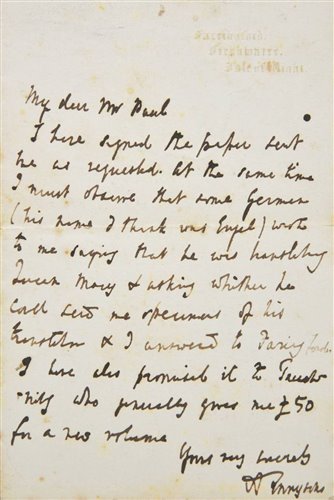 Farringford,
Freshwater,
Isle of Wight.
My dear Mr Paul
I have signed the paper sent
me as requested. At the same time
I must observe that some German
(his name I think was Engel) wrote
to me saying that he was translating
Queen Mary & asking whether he
could send me specimens of his
translation & I answered to Farringford.
I have also promised it to Tauch-
-nitz who generally gives me £50
for a new volume
Yours very sincerely
A Tennyson